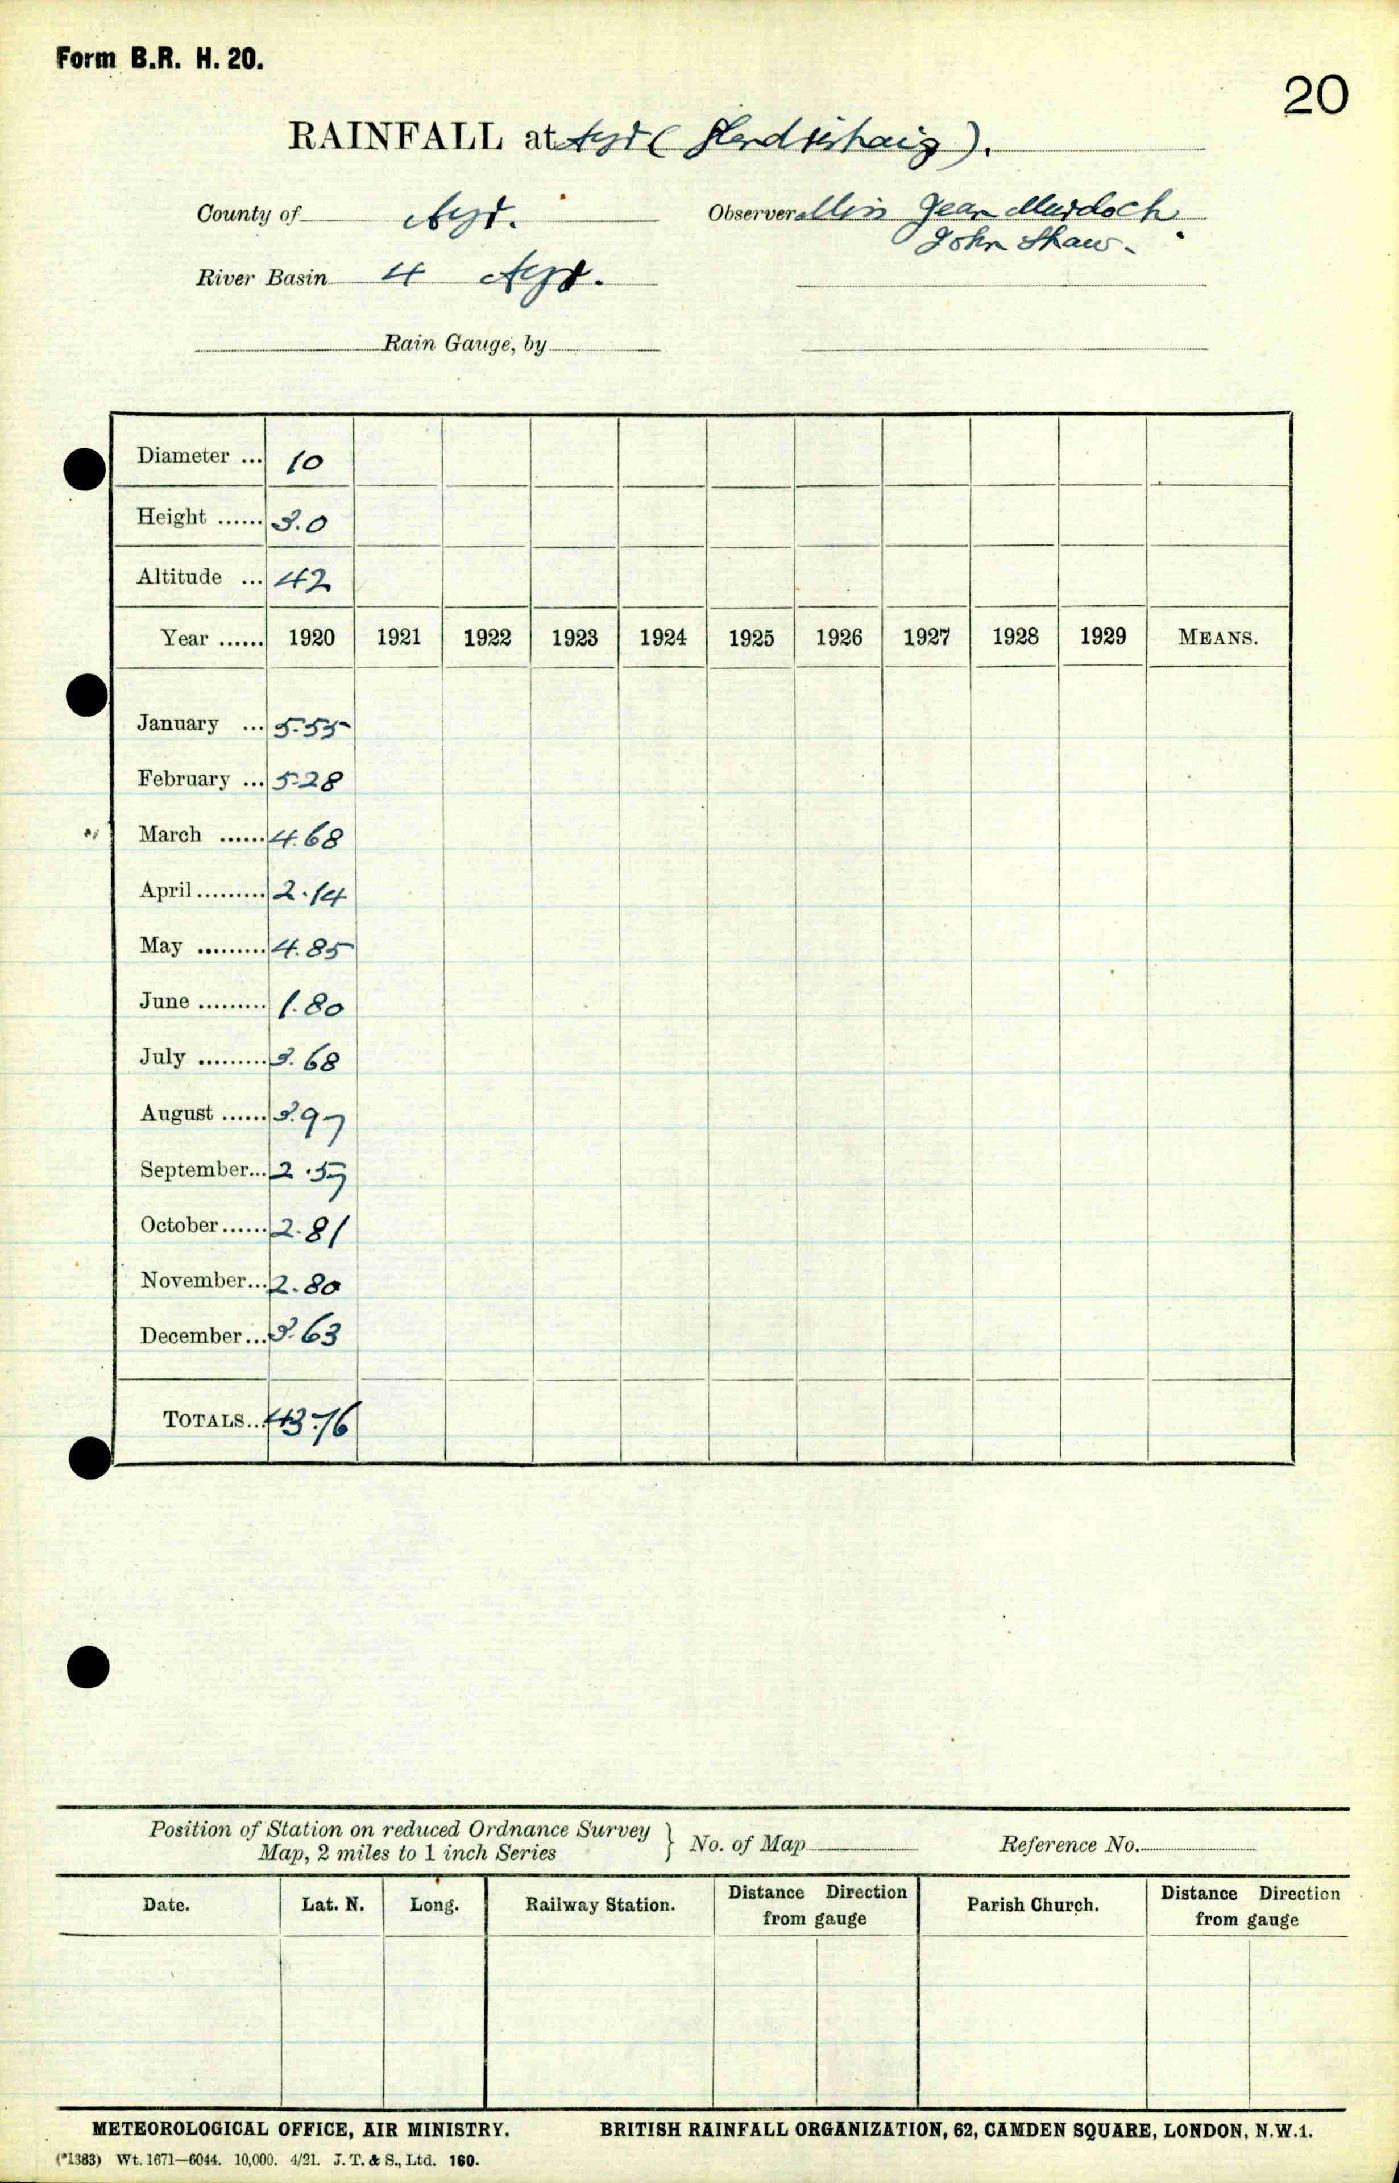 Form B.R. H. 20.
20
RAINFALL at Ayr ( ).
County of Ayr. Observer Miss Jean Murdoch.
John Shaw.
River Basin 4 Ayr.
Rain Gauge, by
Diameter ... 10
Height ...... 3.0
Altitude ... 42
Year ...... 1920 1921 1922 1923 1924 1925 1926 1927 1928 1929 MEANS.
January ... 5.55
February ... 5.28
March ...... 4.68
April ......... 2.14
May ......... 4.85
June ......... 1.80
July ......... 3.68
August ...... 3.97
September... 2.57
October ...... 2.81
November... 2.80
December ... 3.63
TOTALS... 43.76
Position of Station on reduced Ordnance Survey
Map, 2 miles to 1 inch Series } No. of Map Reference No.
Date. Lat. N. Long. Railway Station. Distance Direction from gauge Parish Church. Distance Direction from gauge
METEOROLOGICAL OFFICE, AIR MINISTRY. BRITISH RAINFALL ORGANIZATION, 62, CAMDEN SQUARE, LONDON, N.W.1.
(*1383) Wt. 1671—6044. 10,000. 4/21. J. T. & S., Ltd. 160.